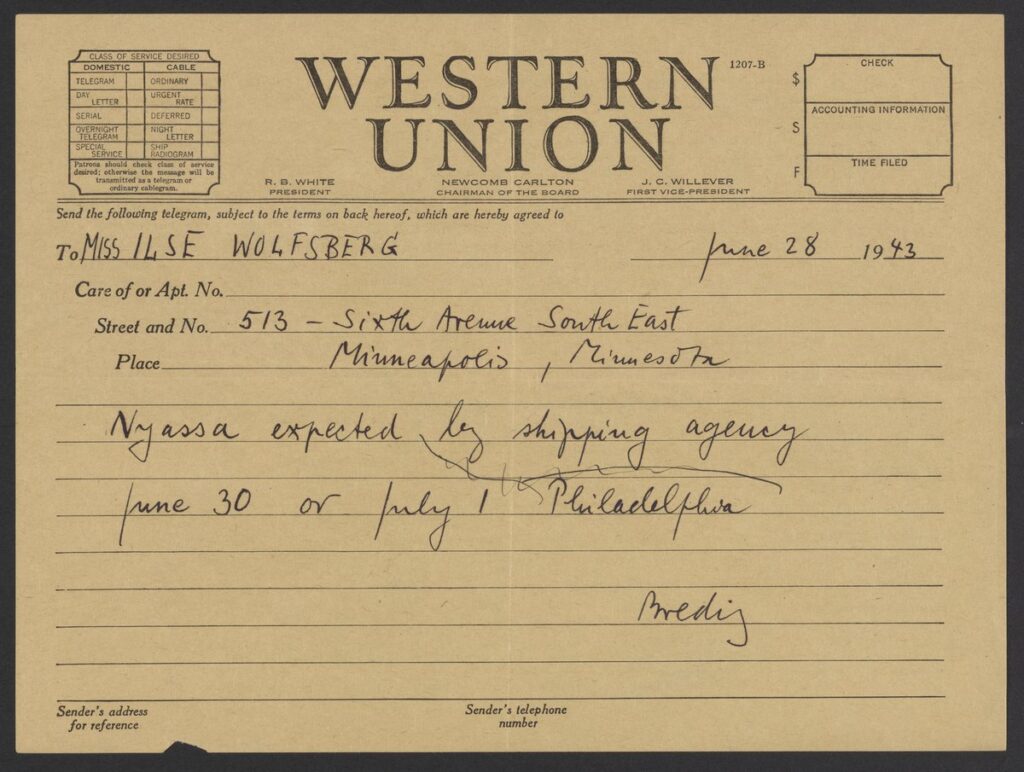 CLASS OF SERVICE DESIRED
DOMESTIC CABLE
TELEGRAM ORDINARY
DAY LETTER URGENT RATE
SERIAL DEFERRED
OVERNIGHT TELEGRAM NIGHT LETTER
SPECIAL SERVICE SHIP RADIOGRAM
Patrons should check class of service
desired; otherwise the message will be
transmitted as a telegram or
ordinary cablegram.
WESTERN
UNION
1207-B
R. B. WHITE
PRESIDENT
NEWCOMB CARLTON
CHAIRMAN OF THE BOARD
J. C. WILLEVER
FIRST VICE-PRESIDENT
$
S
F
CHECK
ACCOUNTING INFORMATION
TIME FILED
Send the following telegram, subject to the terms on back hereof, which are hereby agreed to
To MISS ILSE WOLFSBERG june 28 1943
Care of or Apt. No.
Street and No. 513 - Sixth Avenue South East
Place Minneapolis, Minnesota
Nyassa expected by shipping agency
june 30 or july 1 Philadelphia
Bredig
Sender's address
for reference
Sender's telephone
number